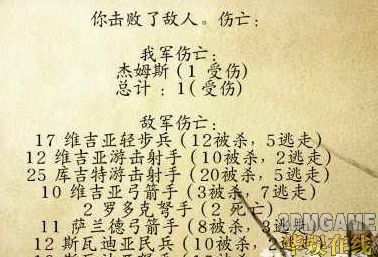 你击败了敌人。伤亡:
我军伤亡:
杰姆斯 (1 受伤)
总计 : 1(受伤)
敌军伤亡:
17 维吉亚轻步兵 (12被杀, 5逃走)
12 维吉亚游击射手 (10被杀, 2逃走)
25 库吉特游击射手 (20被杀, 5逃走)
10 维吉亚弓箭手 (3被杀, 7逃走)
2 罗多克弩手 (2 死亡)
11 萨兰德弓箭手 (8被杀, 3逃
12 斯瓦迪亚民兵 (10被杀, 2
3DMGAME